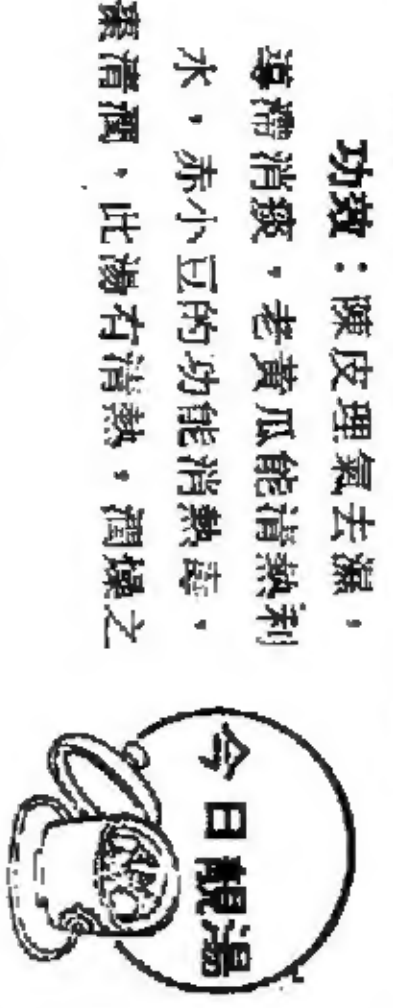 今日靚湯
功效：陳皮理氣去濕，
導滯消痰，老黃瓜能清熱利
水，赤小豆的功能消熱毒，
素清潤，此湯有清熱，潤燥之